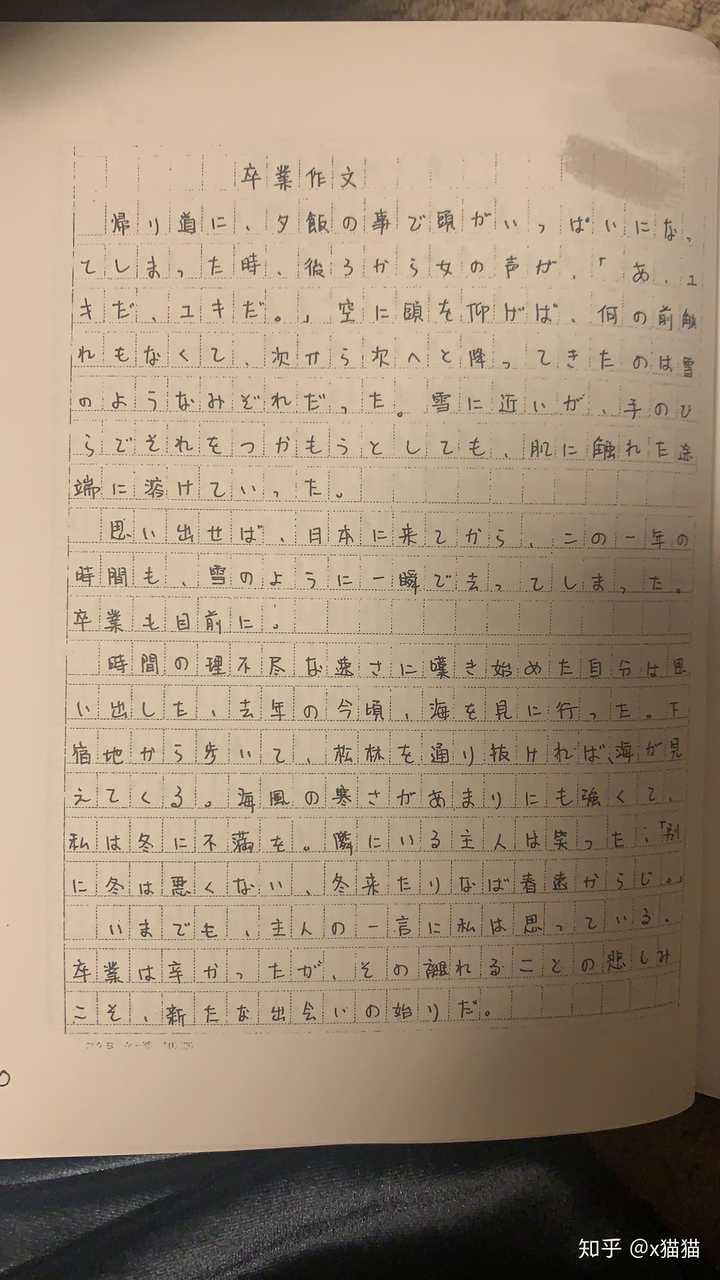 卒業作文
帰り道に、夕飯の事で頭がいっぱいになっ
てしまった時、後ろから女の声が、「あ、ユ
キだ、ユキだ。」空に頭を仰げば、何の前触
れもなくて、次から次へと降ってきたのは雪
のようなみぞれだった。雪に近いが、手のひ
らでそれをつかもうとしても、肌に触れた途
端に溶けていった。
思い出せば、日本に来てから、この一年の
時間も、雪のように一瞬で去ってしまった。
卒業も目前に。
時間の理不尽な速さに嘆き始めた自分は思
い出した、去年の今頃、海を見に行った。下
宿地から歩いて、松林を通り抜ければ、海が見
えてくる。海風の寒さがあまりにも強くて、
私は冬に不満を。隣にいる主人は笑った、「別
に冬は悪くない、冬来たりなば春遠からじ。」
いまでも、主人の一言に私は思っている、
卒業は辛かったが、その離れることの悲しみ
こそ、新たな出会いの始りだ。
知乎 @x猫猫